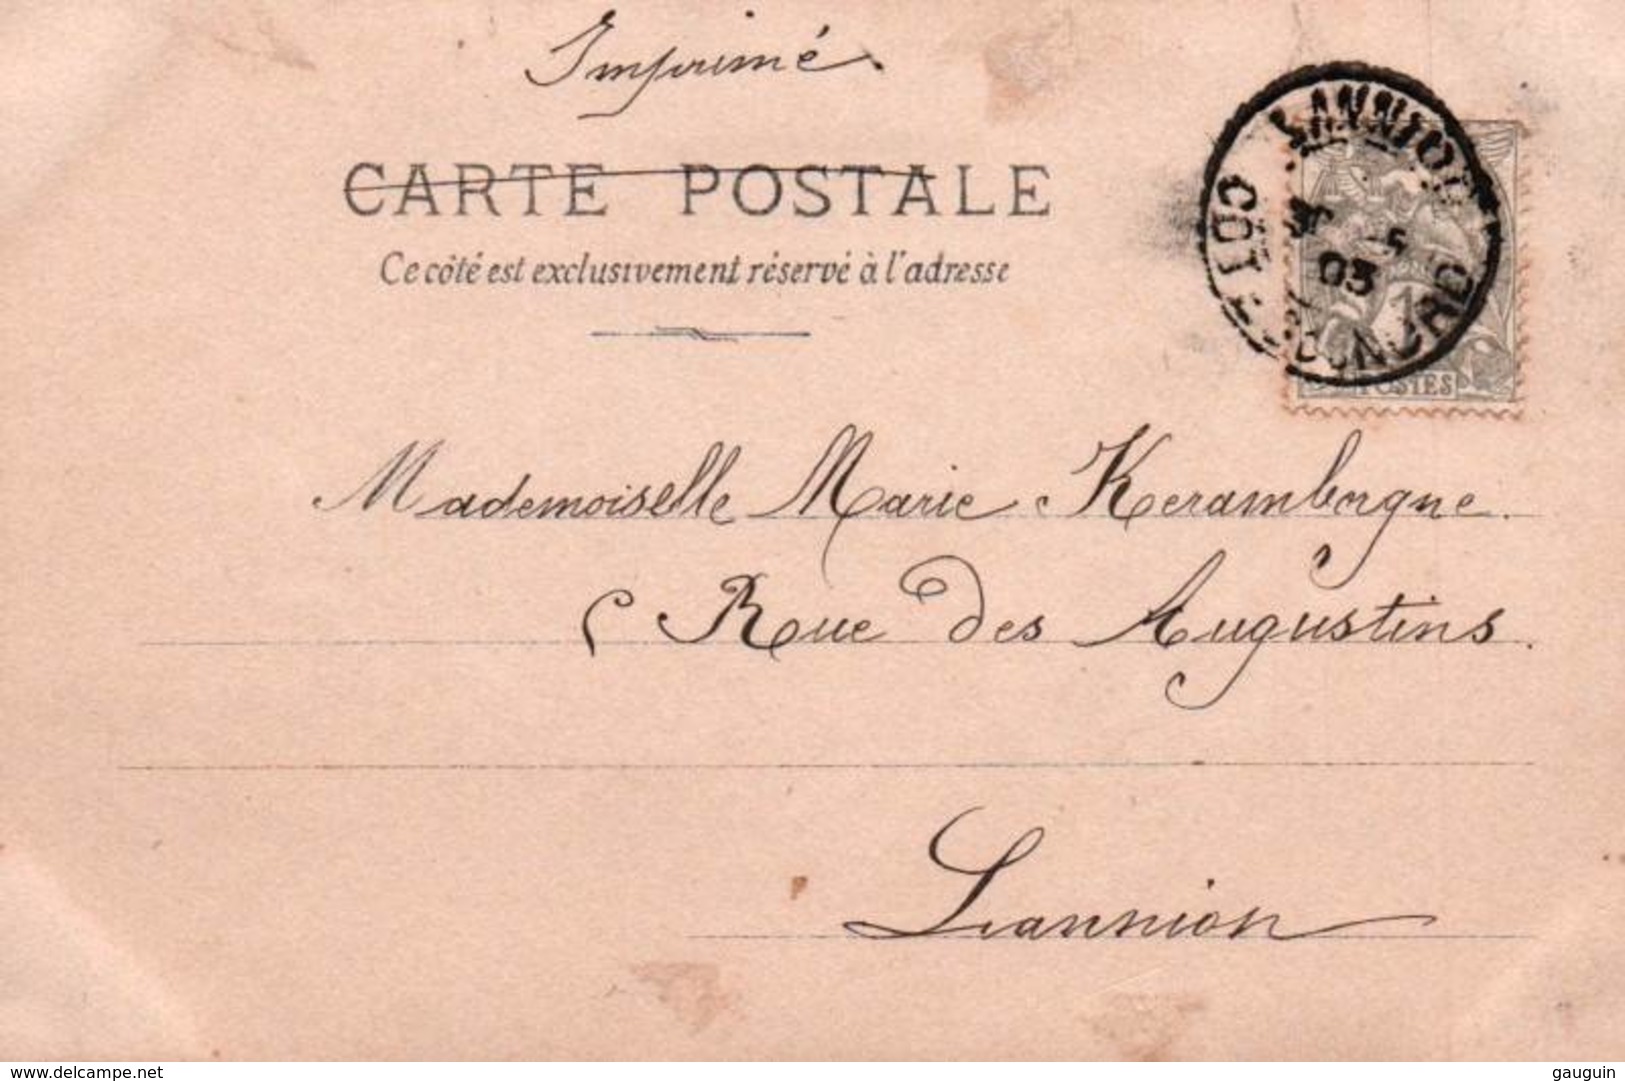 Imprimé.
CARTE POSTALE
Ce côté est exclusivement réservé à l'adresse
LANNION
5
03
CÔTES DU NORD
1
POSTES
Mademoiselle Marie Keramborgne.
Rue des Augustins.
Lannion
delcampe.net
gauguin